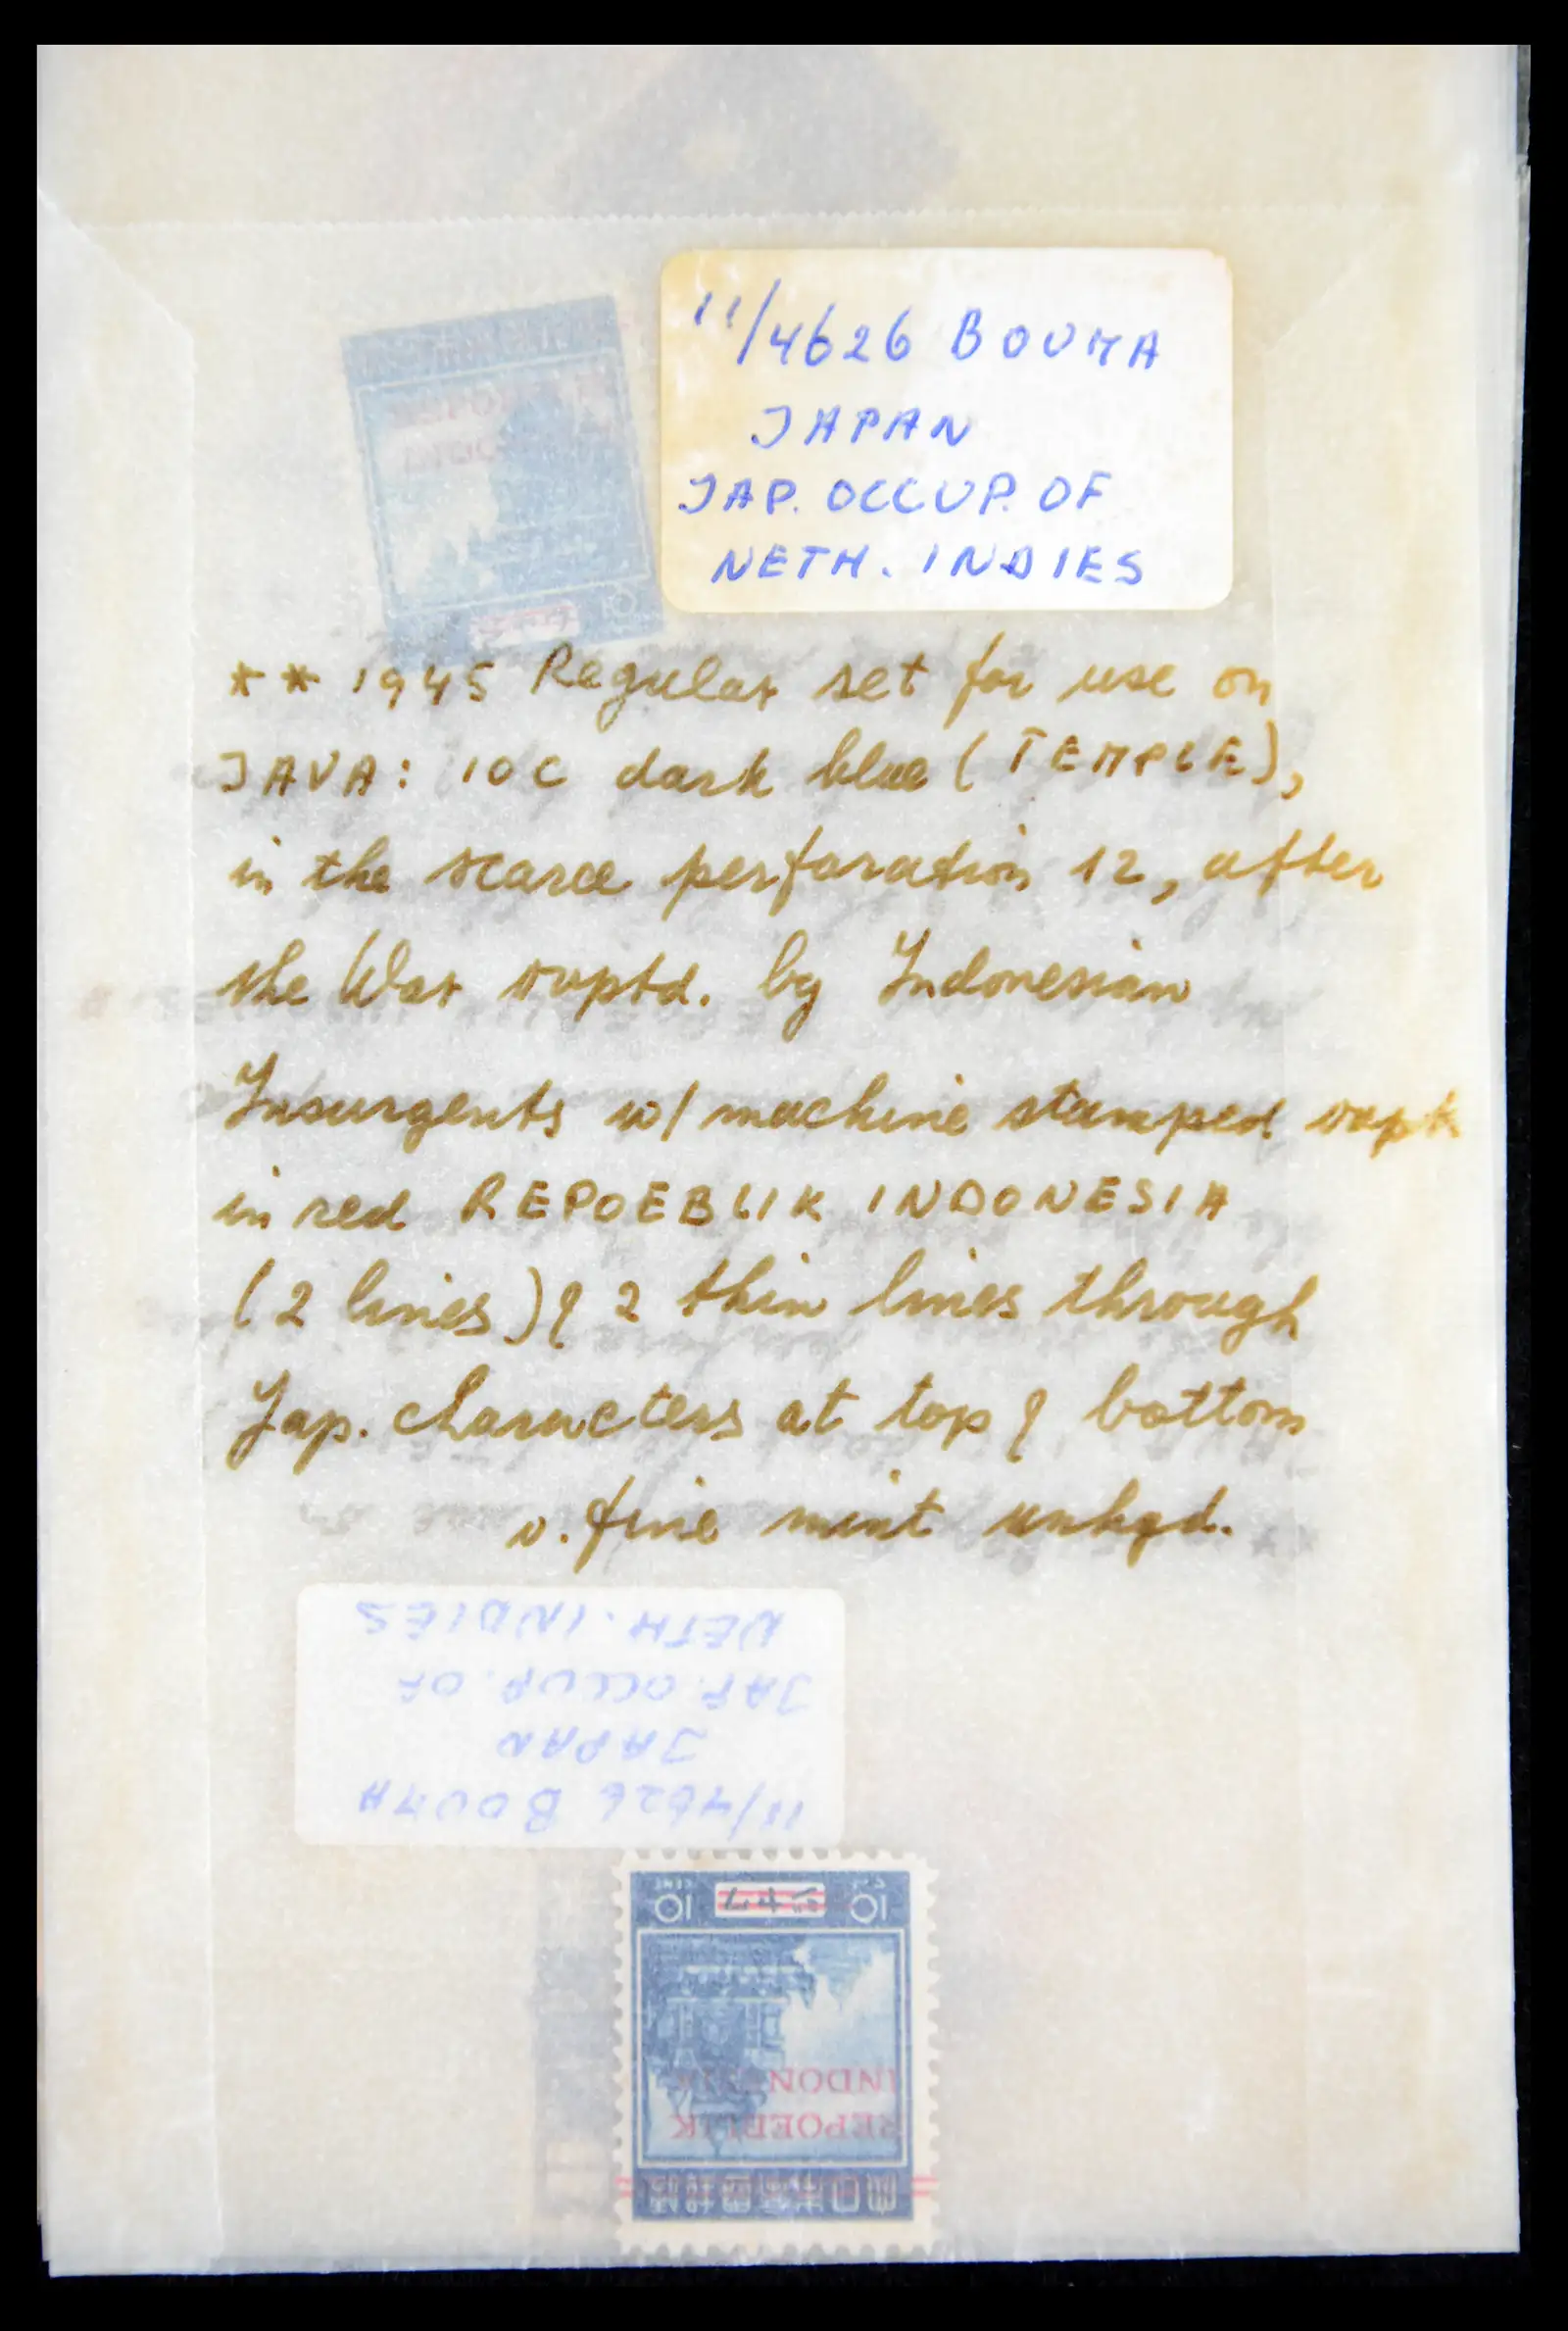 11/4626 BOUMA
JAPAN
JAP. OCCUP. OF
NETH. INDIES
** 1945 Regular set for use on
JAVA: 10C dark blue (TEMPLE),
in the scarce perforation 12, after
the War ovptd. by Indonesian
Insurgents w/ machine stamped ovpt
in red REPOEBLIK INDONESIA
(2 lines) & 2 thin lines through
Jap. characters at top & bottom
v. fine mint unhgd.
NETH. INDIES
JAP. OCCUP. OF
JAPAN
11/4626 BOUMA
CENT
10 10
INDONESIA
REPOEBLIK